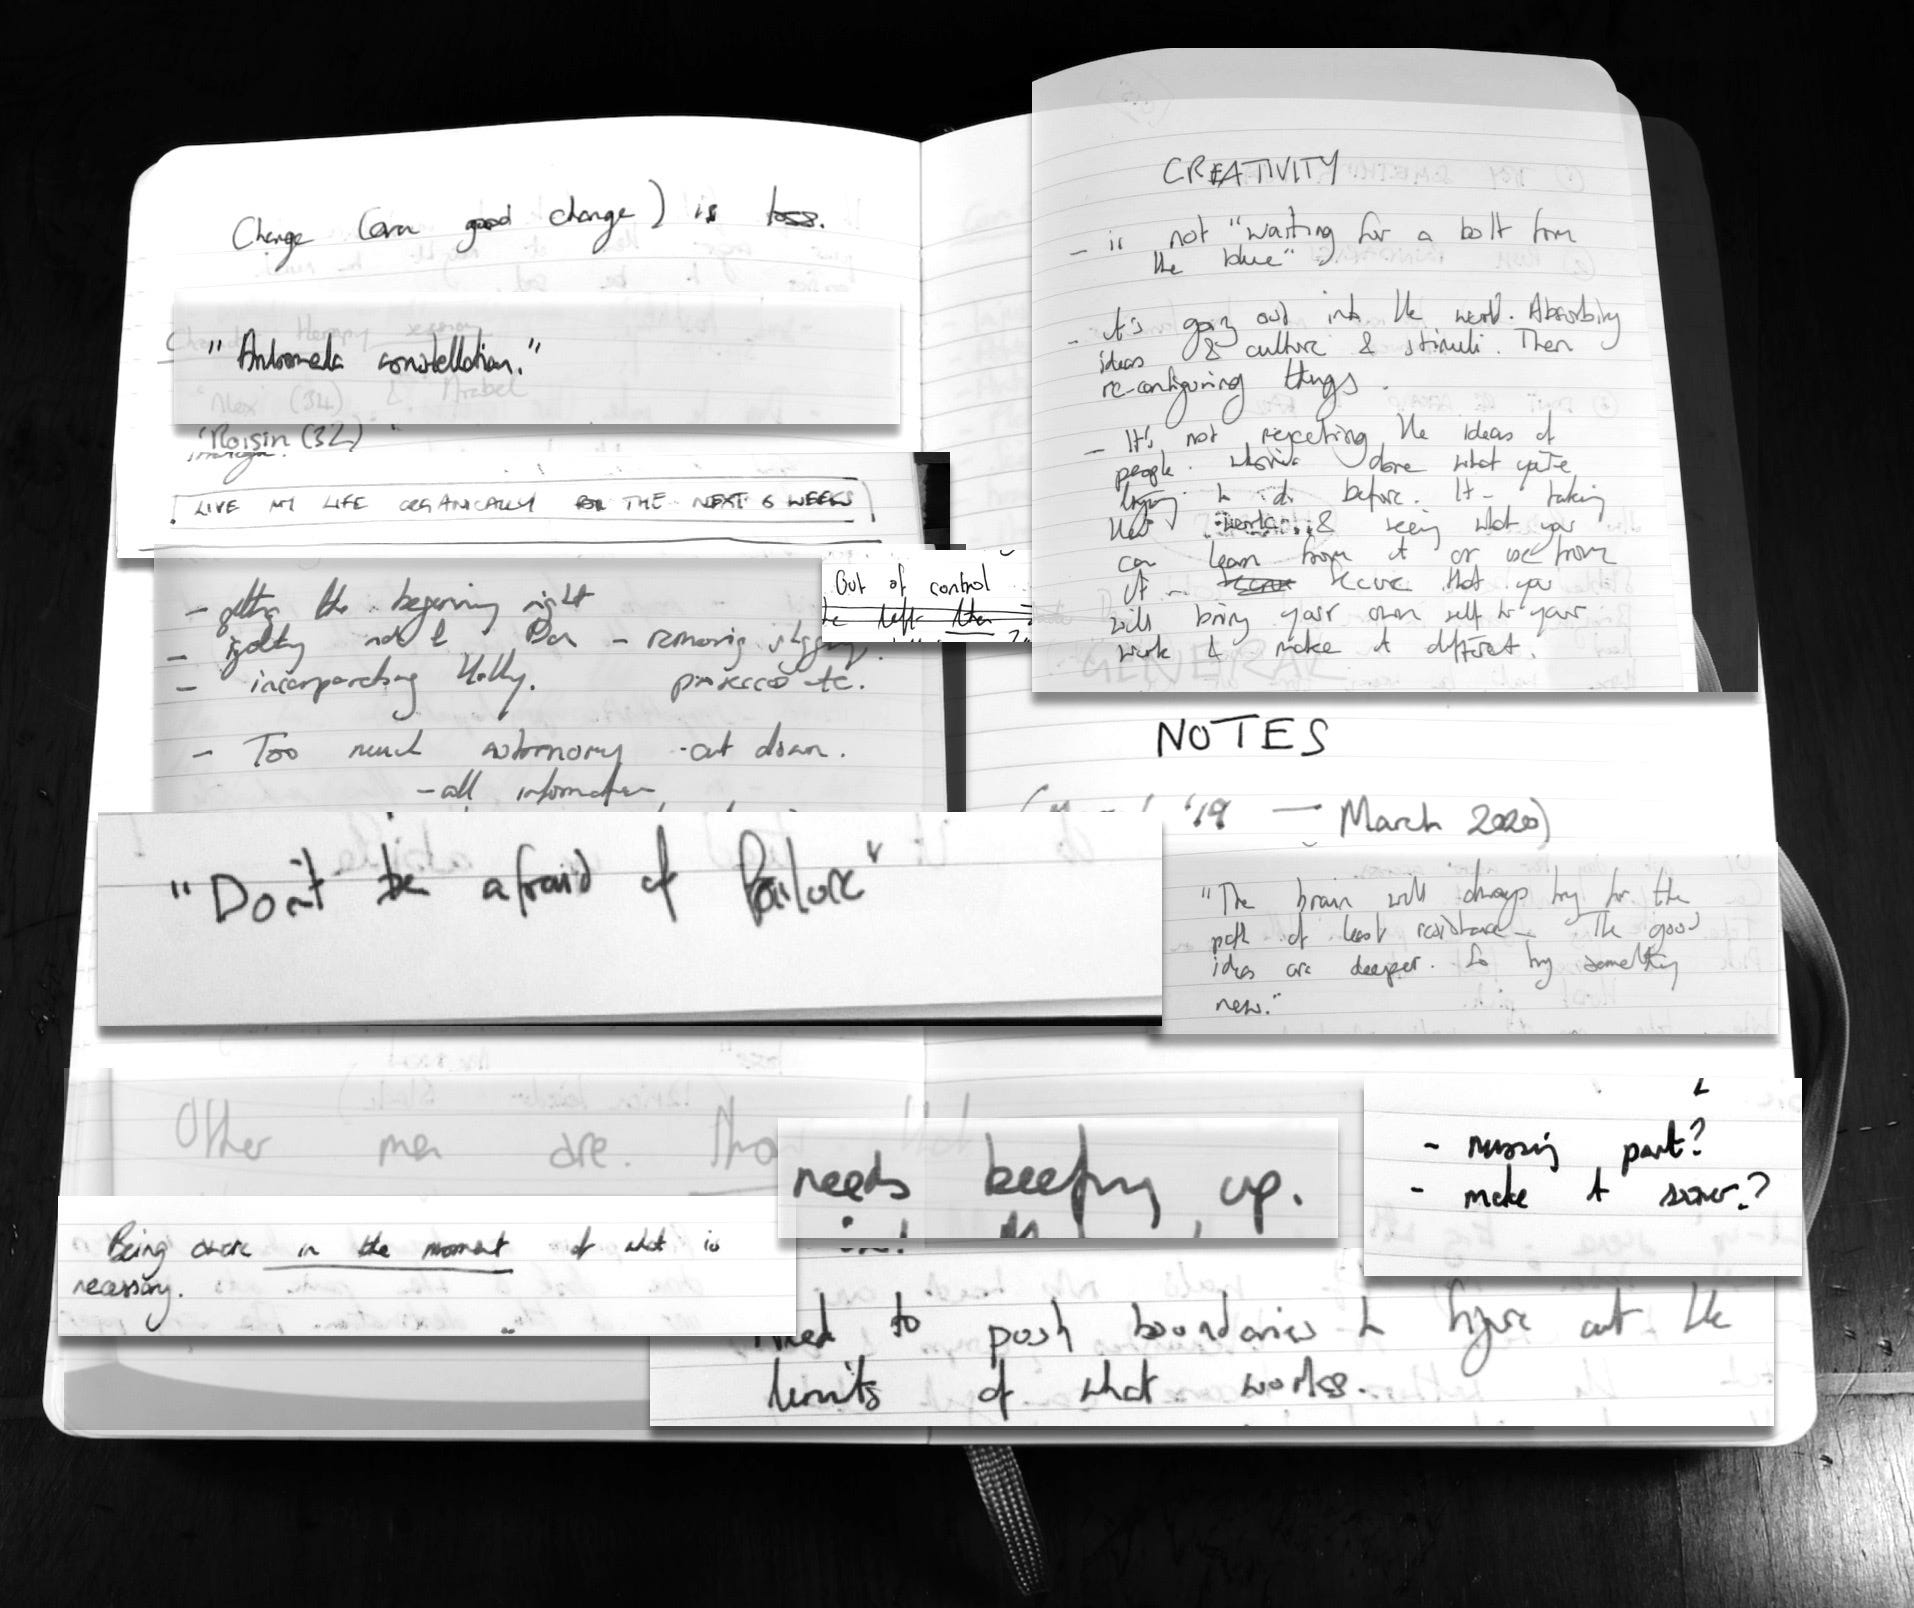 Change (even good change) is loss.
"Andromeda constellation."
"Alex (34) & Arabel
"Roisin (32)"
LIVE MY LIFE ORGANICALLY FOR THE NEXT 6 WEEKS
- getting the beginning right
- getting rid of Dan - removing
- incorporating Holly. prosecco etc.
- Too much autonomy - cut down.
- all information
Out of control
left then
"Don't be afraid of failure"
Other men are. Than
Being aware in the moment of what is
necessary.
CREATIVITY
- is not "waiting for a bolt from
the blue"
- it's going out into the world. Absorbing
ideas & culture & stimuli. Then
re-configuring things.
- It's not rejecting the ideas of
people who've done what you're
trying to do before. It's taking
their works & seeing what you
can learn from it or use from
it - because that you
will bring your own self to your
work & make it different.
GENERAL
NOTES
'19 — March 2020)
"The brain will always try for the
path of least resistance - The good
ideas are deeper. So try something
new."
needs beefing up.
- missing part?
- make it sooner?
need to push boundaries to figure out the
limits of what works.